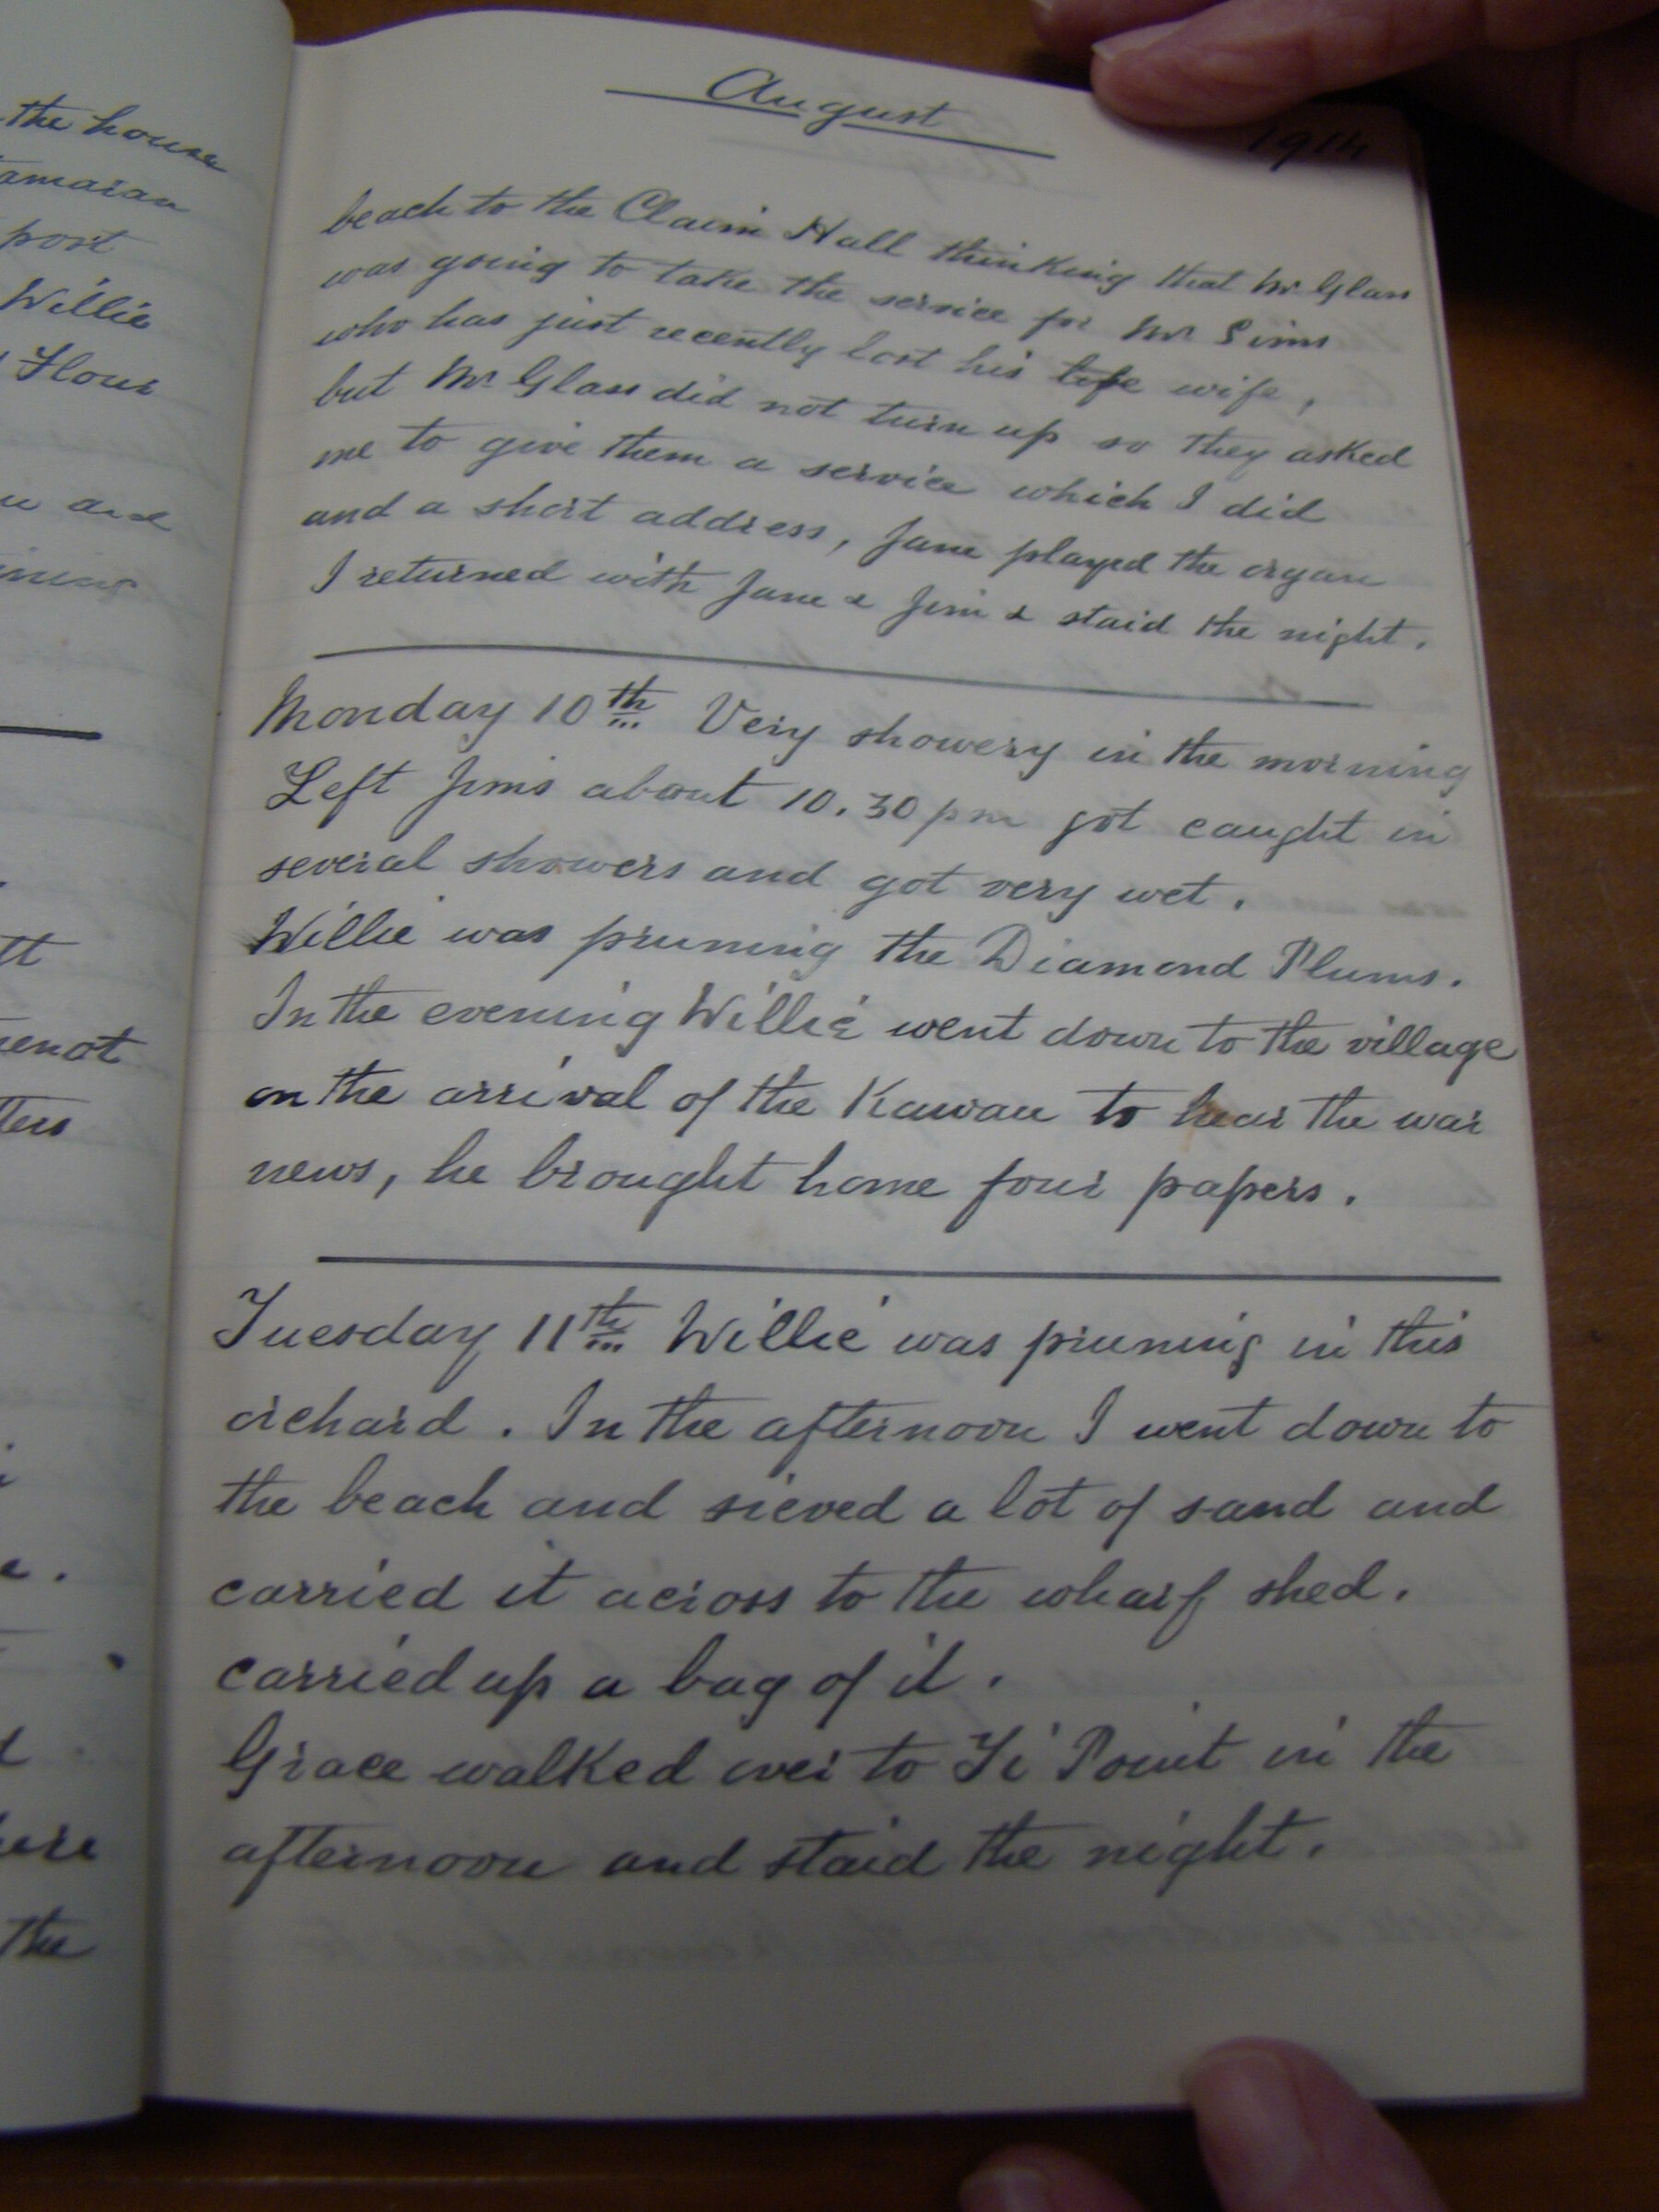 the house
amaian
port
Willie
Flour
and
ining
tt
enot
ters
e.
ere
the
August
1914
beach to the Claim Hall thinking that Mr Glass
was going to take the service for Mr Sims
who has just recently lost his life wife,
but Mr Glass did not turn up so they asked
me to give them a service which I did
and a short address, Jane played the organ
I returned with Jane & Jim & staid the night.
Monday 10th Very showery in the morning
Left Jims about 10.30 pm got caught in
several showers and got very wet.
Willie was pruning the Diamond Plums.
In the evening Willie went down to the village
on the arrival of the Kawau to hear the war
news, he brought home four papers.
Tuesday 11th Willie was pruning in this
orchard. In the afternoon I went down to
the beach and sieved a lot of sand and
carried it across to the wharf shed.
carried up a bag of it.
Grace walked over to Ti Point in the
afternoon and staid the night.